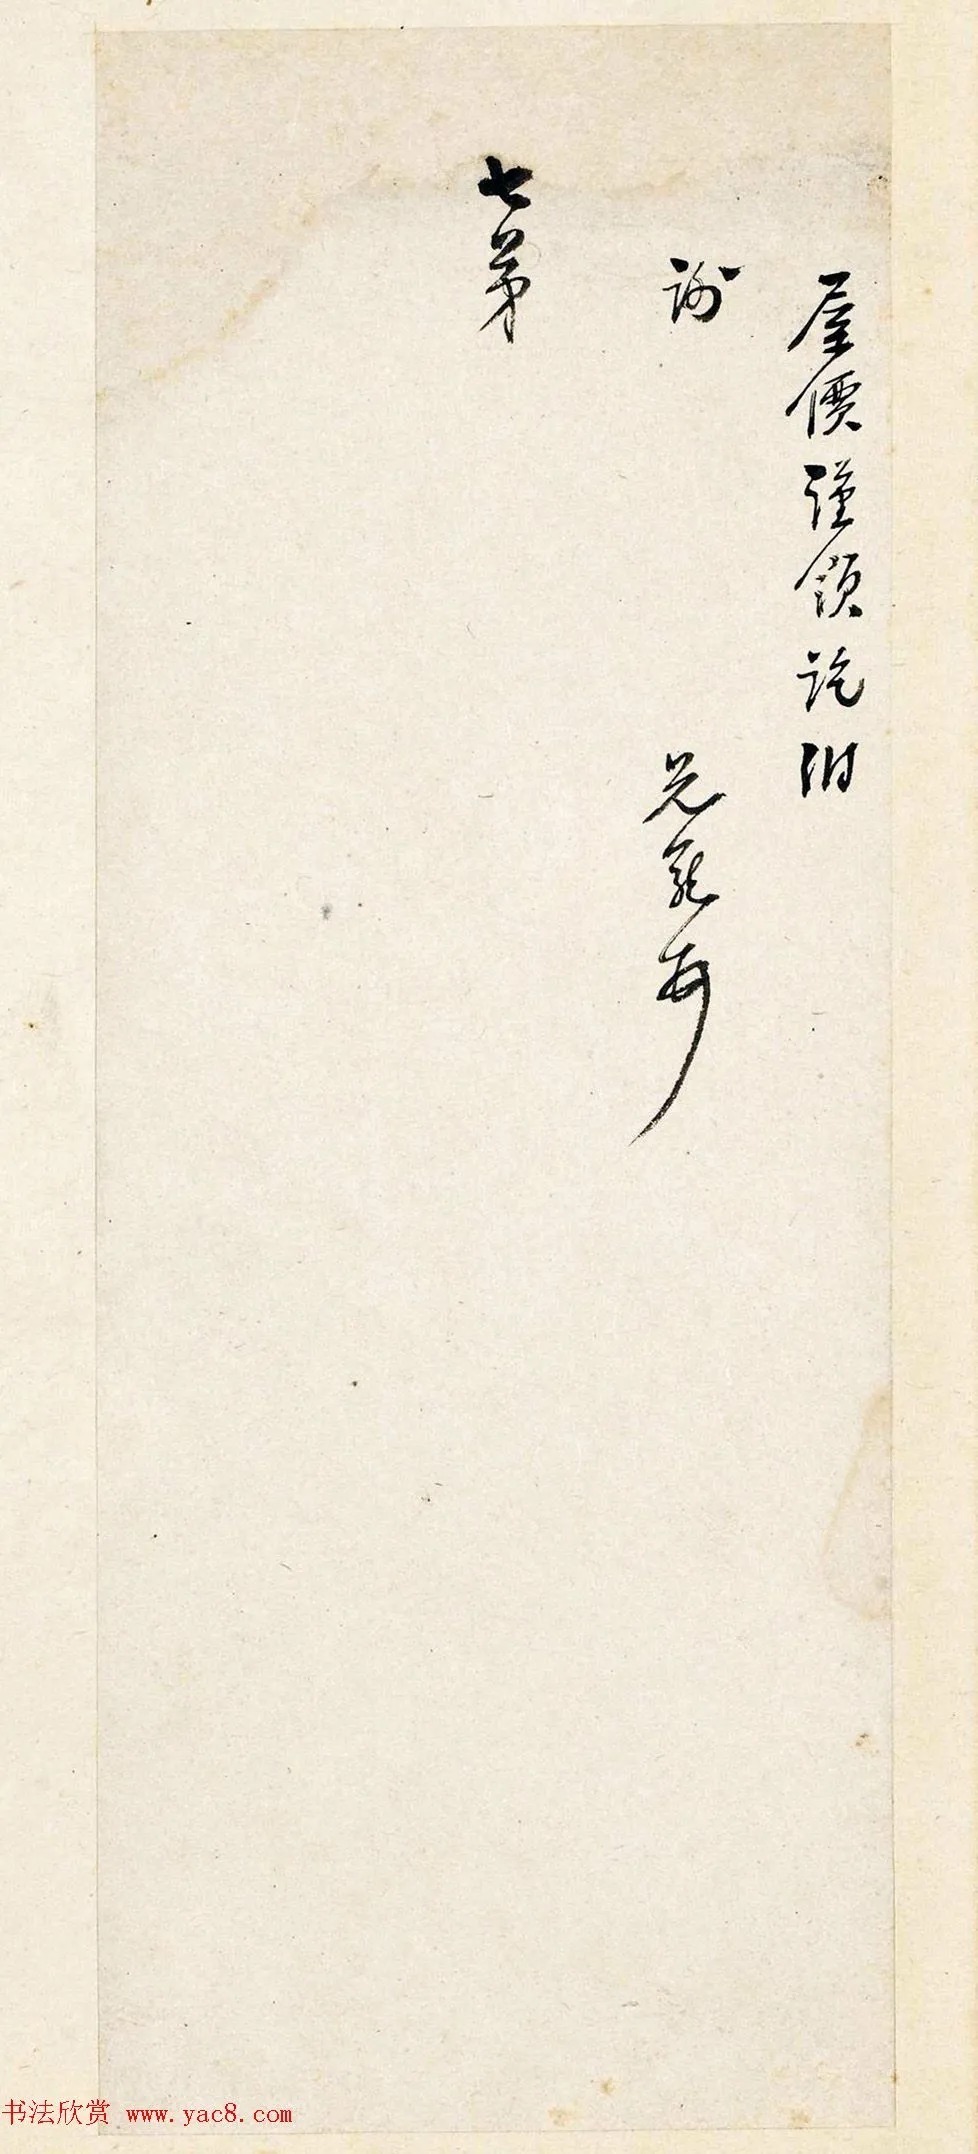 屋價謹領訖附
謝
兄
七弟
书法欣赏 www.yac8.com